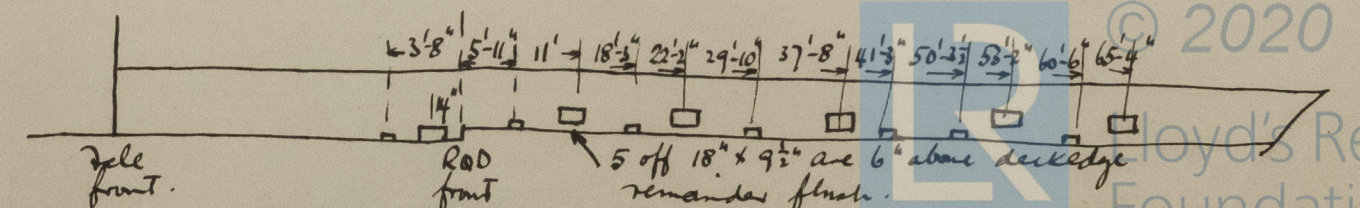 3'-8" 5'-11" 11' 18'-3" 22'-2" 29'-10" 37'-8" 41'-8" 50'-3½" 53'-2" 60'-6" 65'-4"
14"
RQD
front
front.
5 off 18" x 9½" are 6" above deckedge
remainder flush.
© 2020
LR
Lloyd's Re
Foundation